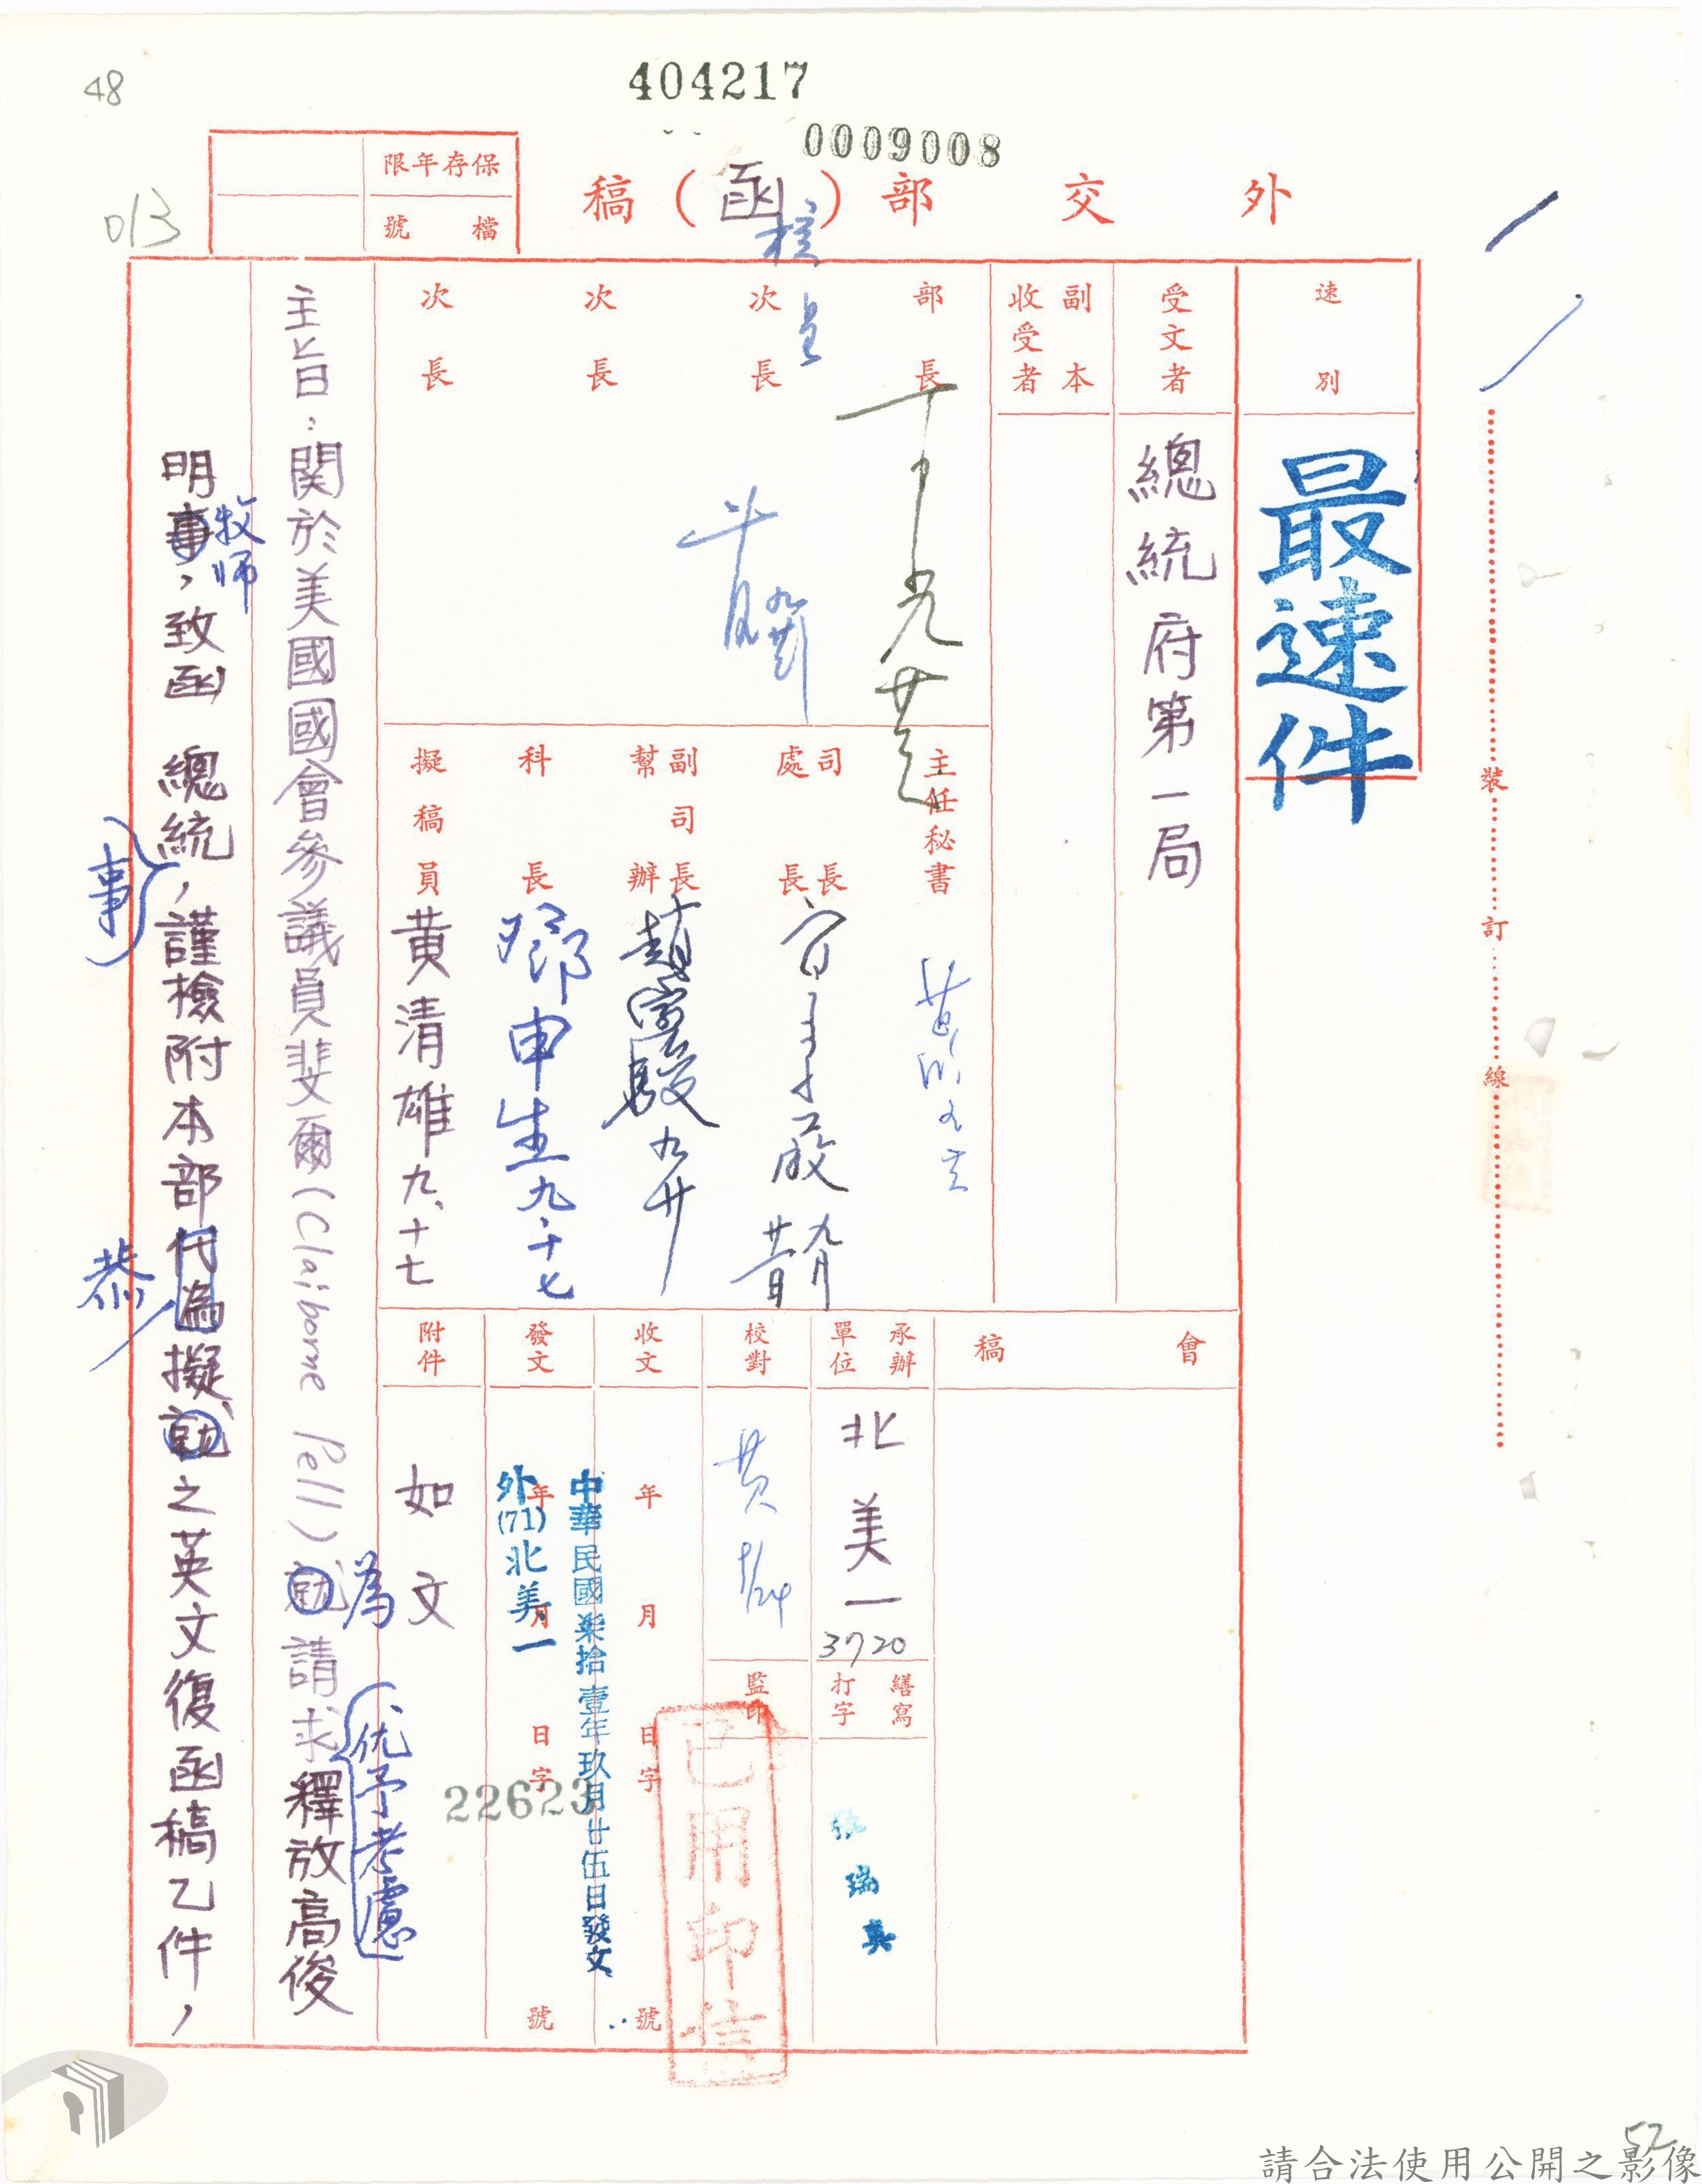 48
404217
0009008
013
保存年限
檔號
外交部(函)稿
核呈
速別
最速件
受文者
總統府第一局
副本收受者
部長
次長
次長
次長
主任秘書
司長
處長
副司長
幫辦
趙
九廿
科長
鄧申生九.十七
擬稿員
黃清雄九、十七
會稿
承辦單位
北美一
3720
繕寫
打字
校對
黃
9/24
監印
已用印信
收文
年月日字號
發文
年月日字號
中華民國柒拾壹年玖月廿伍日發文
外(71)北美一
22623
附件
如文
主旨:関於美國國會參議員斐爾(Claiborne Pell)就請求釋放高俊
為
优予考慮
明事,致函 總統,謹檢附本部代為擬就之英文復函稿乙件,
牧師
事
恭
裝
訂
線
52
請合法使用公開之影像